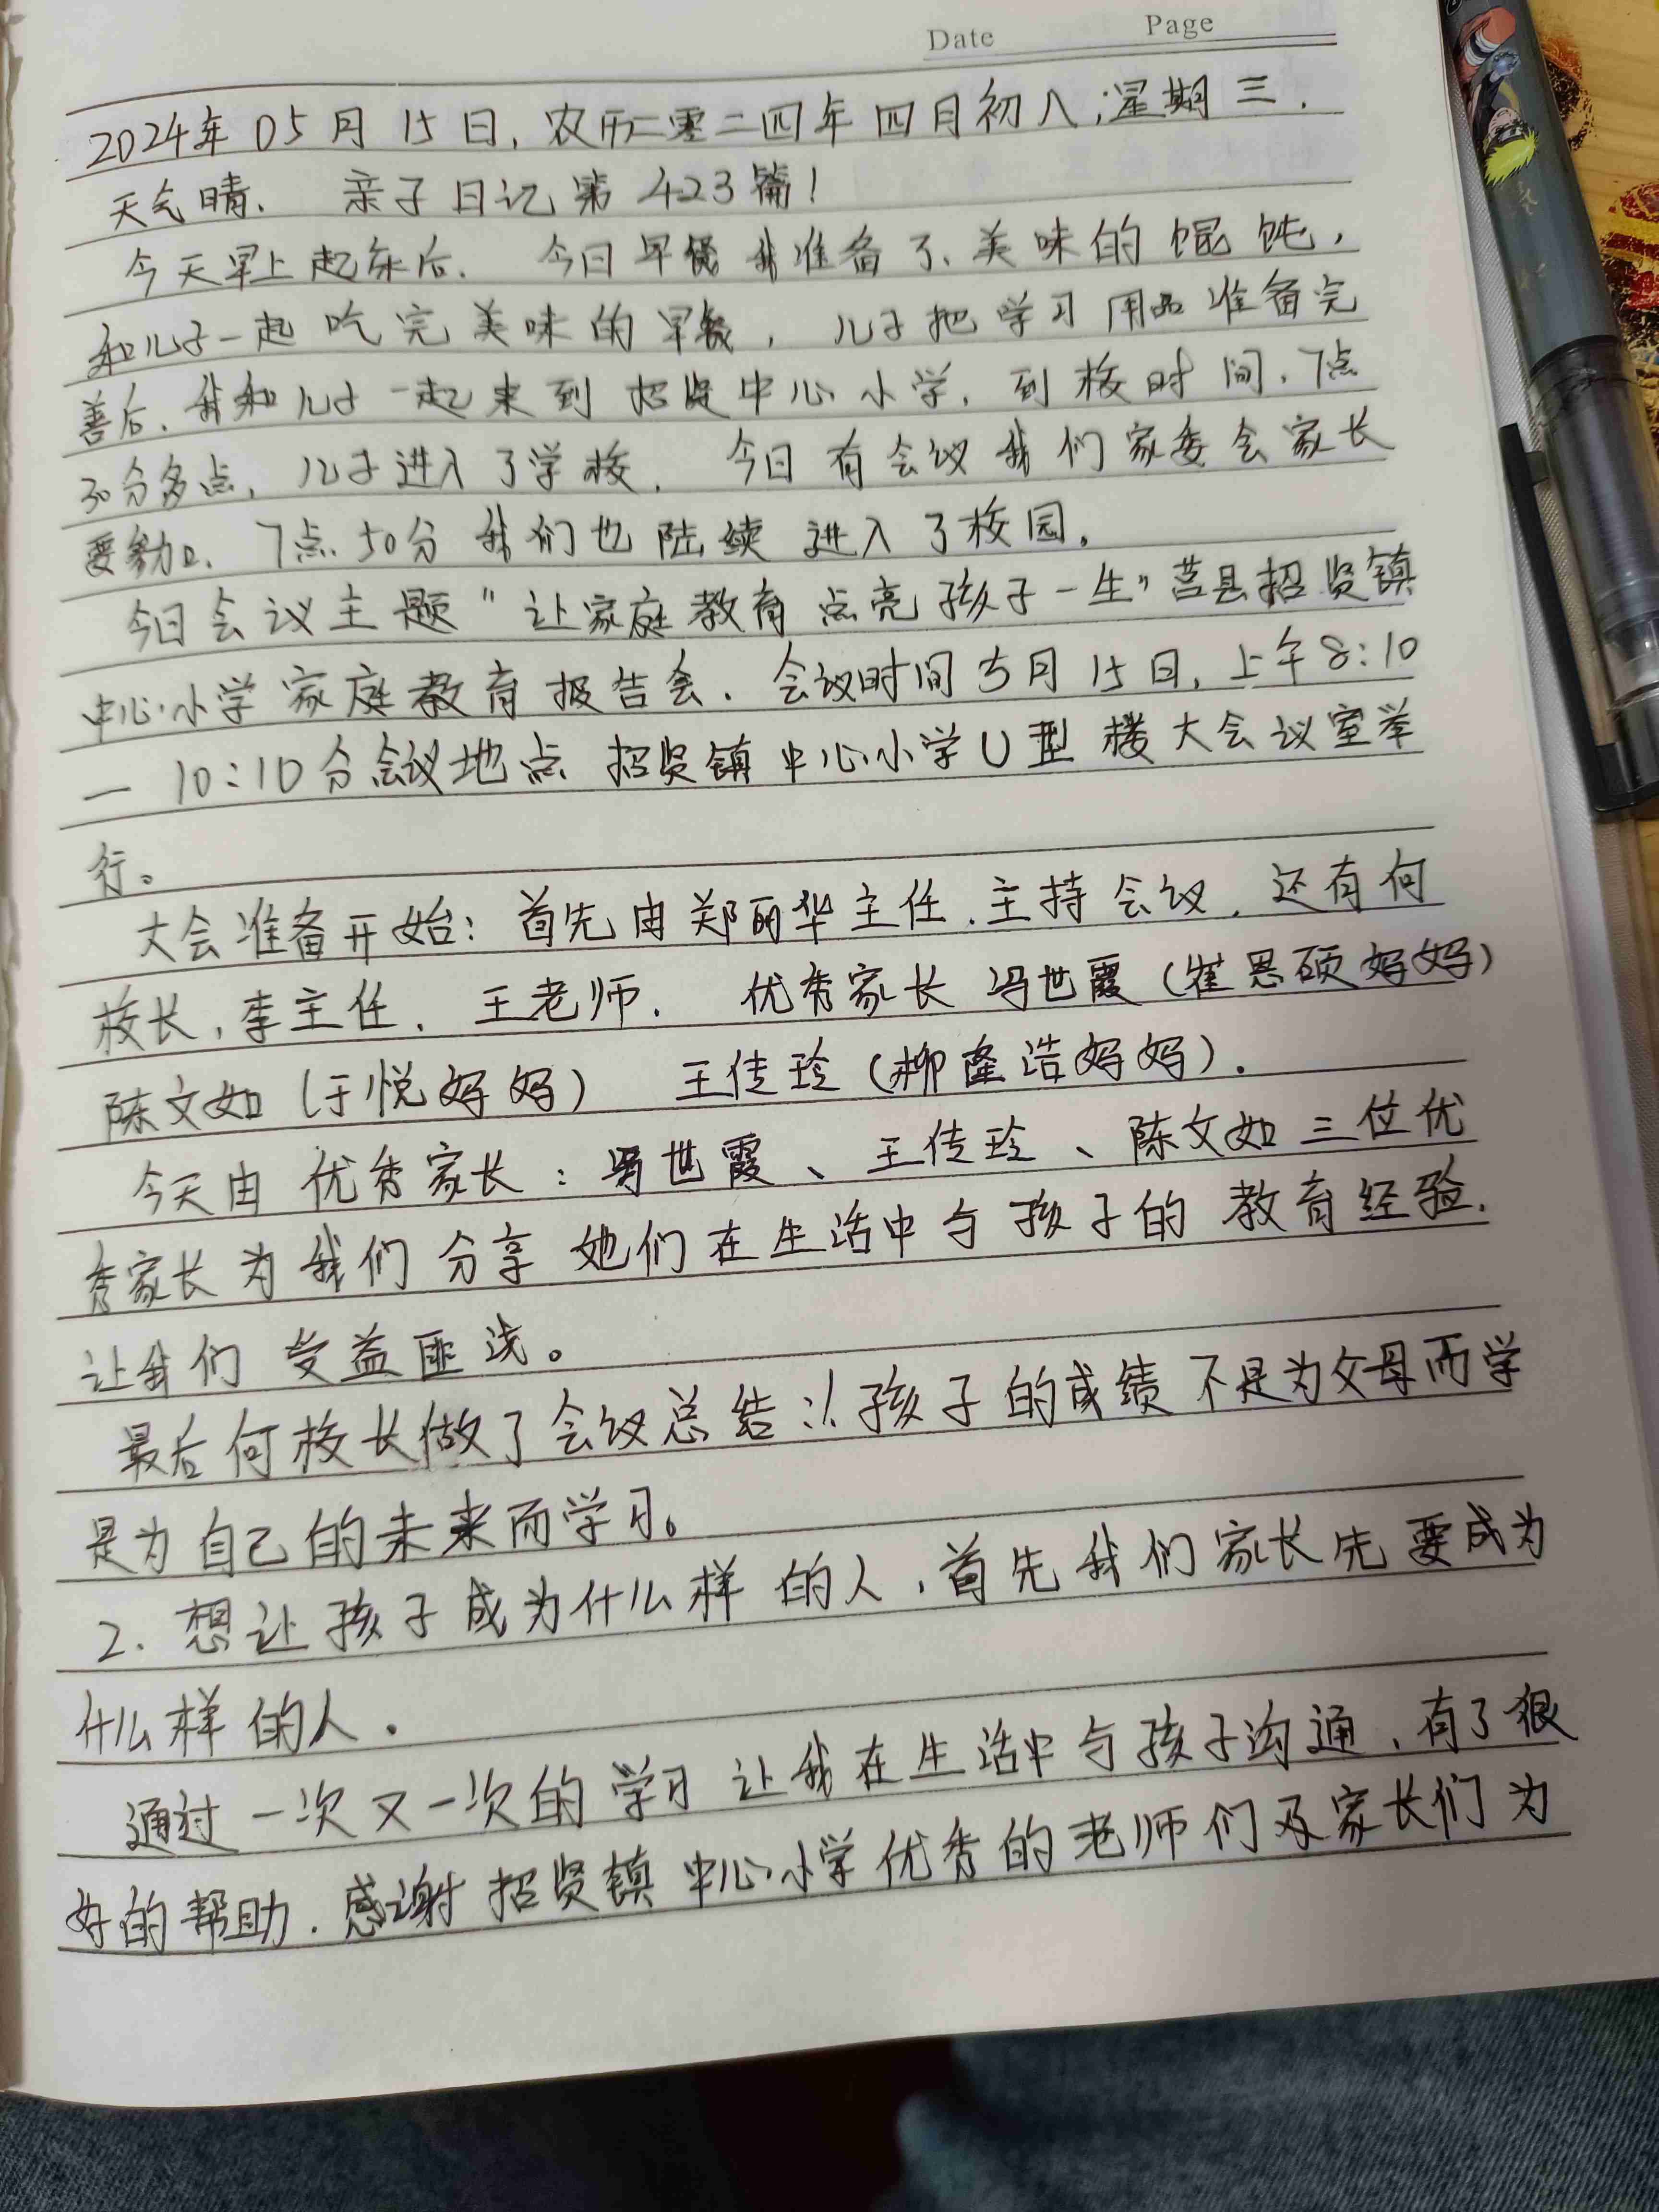 Date Page
2024年05月15日,农历二零二四年四月初八,星期三.
天气晴. 亲子日记第423篇!
今天早上起床后. 今日早餐我准备了美味的馄饨,
和儿子一起吃完美味的早餐,儿子把学习用品准备完
善后,我和儿子一起来到招贤中心小学,到校时间,7点
30分多点,儿子进入了学校. 今日有会议我们家委会家长
要参加. 7点50分我们也陆续进入了校园。
今日会议主题"让家庭教育点亮孩子一生"莒县招贤镇
中心小学家庭教育报告会.会议时间5月15日,上午8:10
— 10:10分会议地点 招贤镇中心小学U型楼大会议室举
行。
大会准备开始:首先由郑丽华主任.主持会议,还有何
校长,李主任. 王老师. 优秀家长冯世霞(崔恩硕妈妈)
陈文如(于悦妈妈) 王传玲(柳隆浩妈妈).
今天由优秀家长:冯世霞、王传玲、陈文如三位优
秀家长为我们分享她们在生活中与孩子的教育经验.
让我们受益匪浅。
最后何校长做了会议总结:1.孩子的成绩不是为父母而学
是为自己的未来而学习。
2.想让孩子成为什么样的人,首先我们家长先要成为
什么样的人.
通过一次又一次的学习让我在生活中与孩子沟通,有了很
好的帮助.感谢招贤镇中心小学优秀的老师们及家长们为